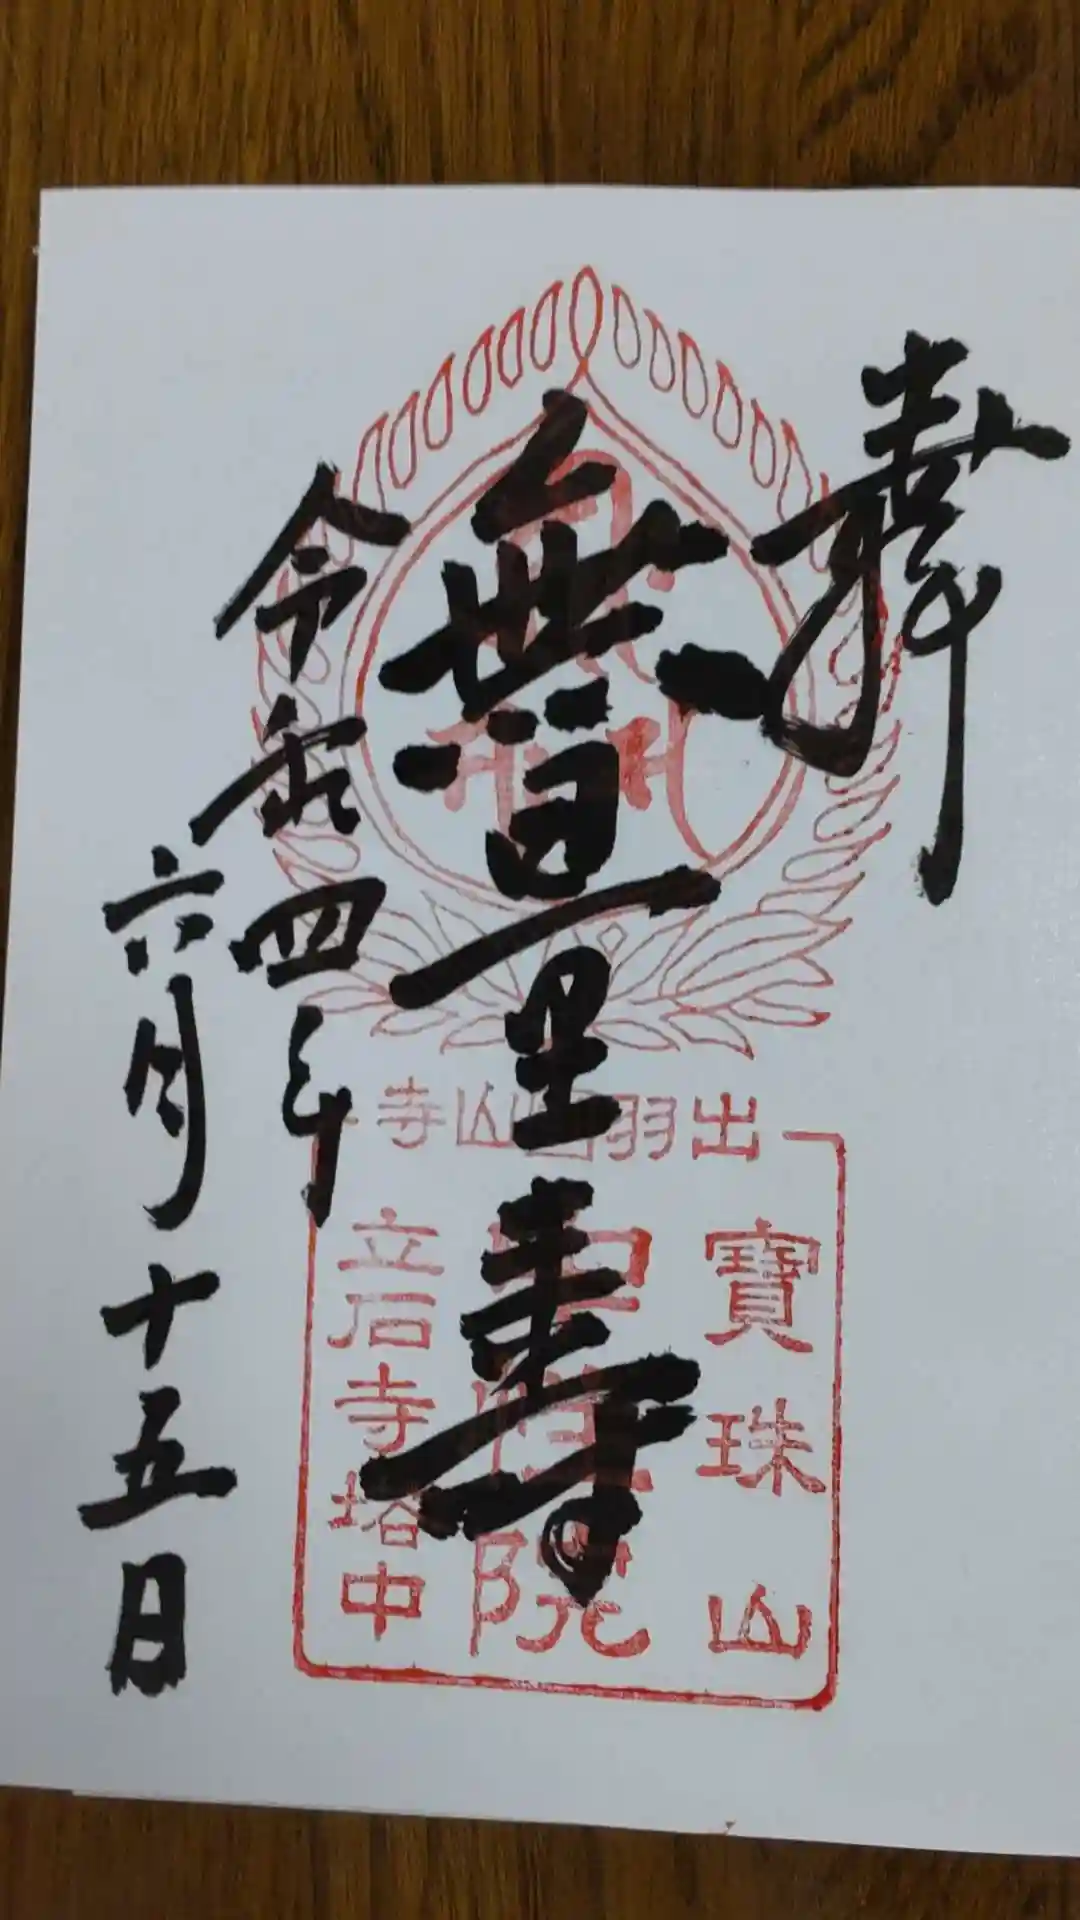 奉拝
無量寿
令和四年
六月十五日
出羽国山寺
寶珠山
中性院
立石寺塔中